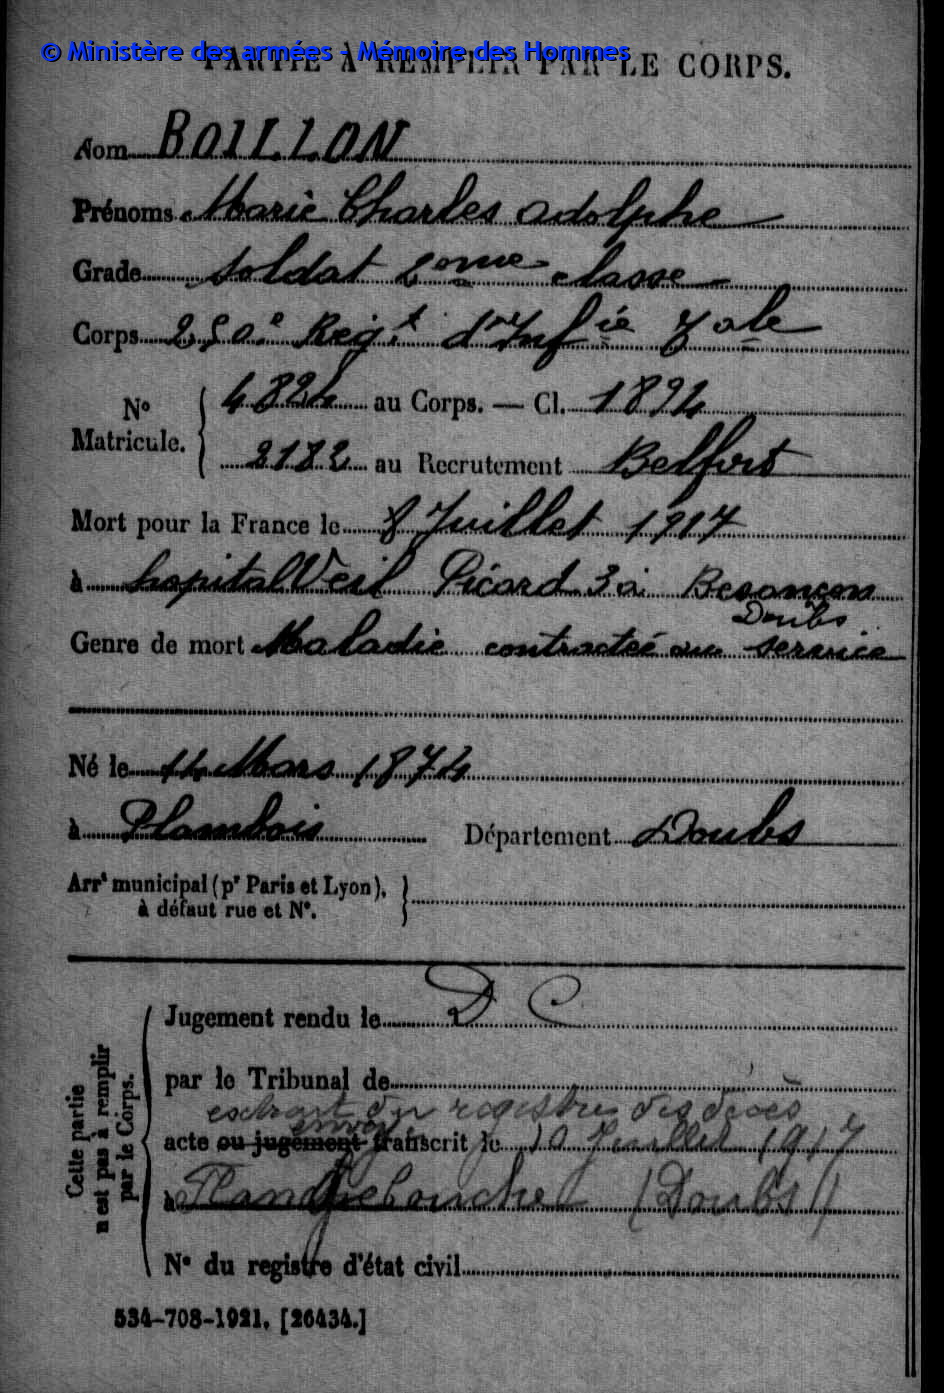 © Ministère des armées - Mémoire des Hommes
PARTIE À REMPLIR PAR LE CORPS.
Nom BOILLON
Prénoms Marie Charles Adolphe
Grade soldat 2eme classe
Corps 250e Regt d'Infie Tale
No Matricule. { 4824 au Corps. — Cl. 1894
2182 au Recrutement Belfort
Mort pour la France le 8 Juillet 1917
à hopital Veil Picard 3 à Besançon
Doubs
Genre de mort Maladie contractée au service
Né le 14 Mars 1874
à Plambois Département Doubs
Arrt municipal (pr Paris et Lyon),
à défaut rue et No.
Cette partie
n'est pas à remplir
par le Corps.
Jugement rendu le D C
par le Tribunal de
extrait du registre des décès
envoyé
acte ou jugement transcrit le 10 Juillet 1917
à Plandgebouche (Doubs)
No du registre d'état civil
534-708-1921. [26434.]